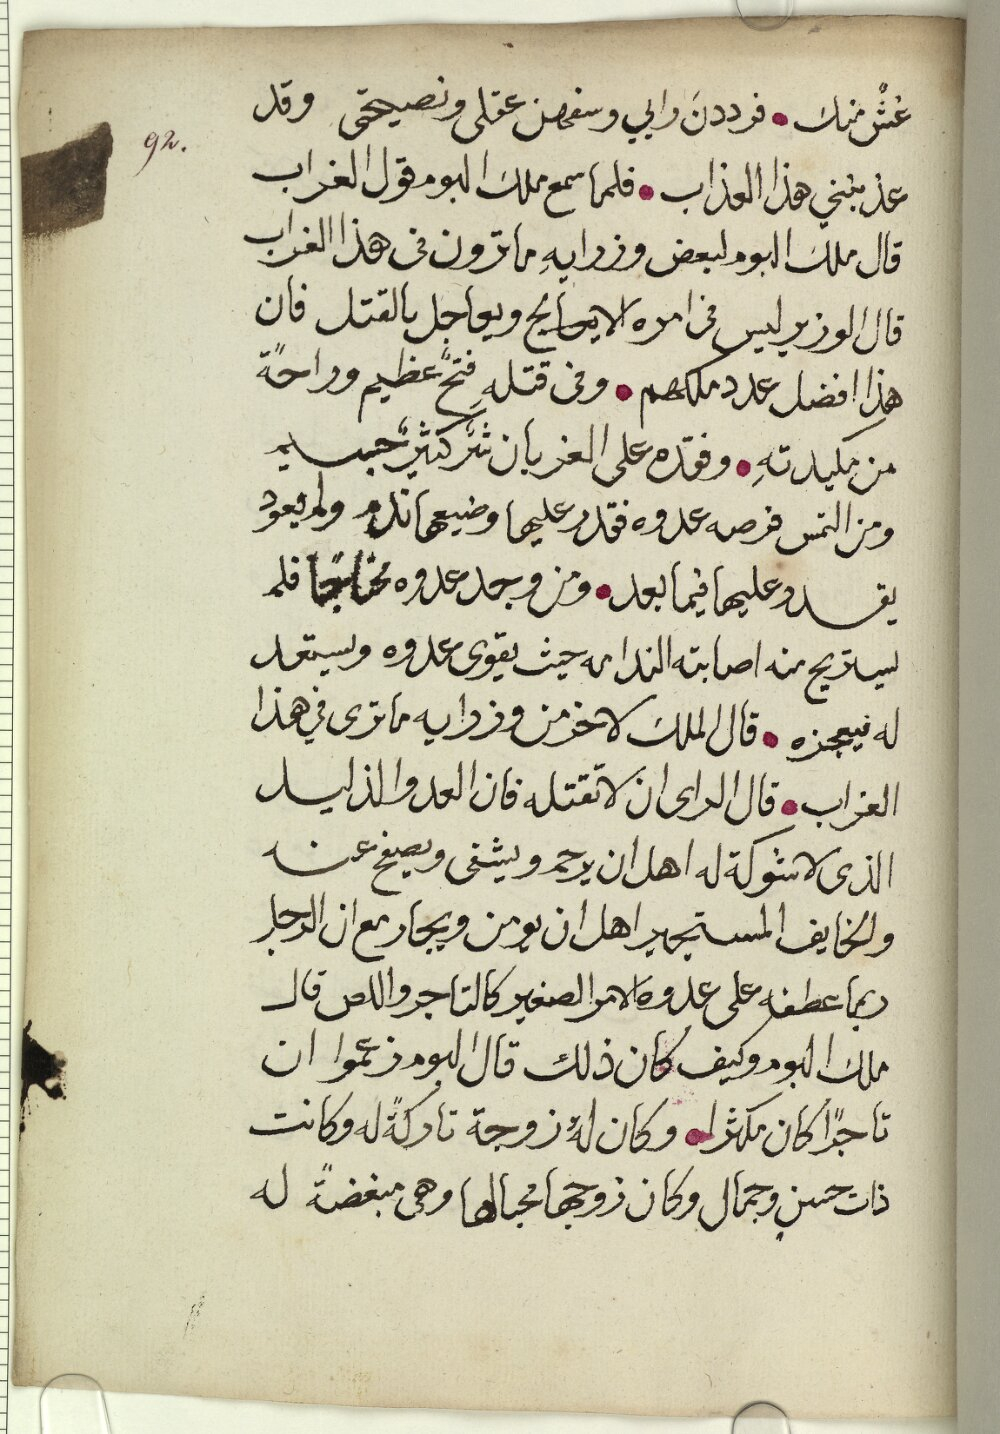 92.
غشٌّ منك • فرددن رايي وسفهن عقلى ونصيحتى وقد
عذبنني هذا العذاب • فلما سمع ملك البوم قول الغراب
قال ملك البوم لبعض وزرايهِ ما ترون فى هذا الغراب
قال الوزير ليس فى امره الا ويعاجل بالقتل فان
هذا افضل عدد ملكهم • وفى قتلهِ فتحٌ عظيم وراحةً
من مكيدتهِ • وفقده على الغربان شرٌّ كثيرٌ جسيم
ومن التمس فرصه عدوه فقدر عليها وضيعها ندم ولم يعود
يقدر عليها فيما بعد • ومن وجد عدوه محتاجًا فلم
يستريح منه اصابته الندامه حيث يقوى عدوه ويستعد
له فيعجزه • قال الملك لاخر من وزرايه ما ترى في هذا
الغراب • قال الراى ان لا تقتله فان العدو الذليل
الذى لا شوكة له اهل ان يرحم ويشفى ويصفح عنه
والخايف المستجير اهل ان يومن ويجار مع ان الرجل
ربما عطفه على عدوه الامر الصغير كالتاجر واللص قال
ملك البوم وكيف كان ذلك قال البوم زعموا ان
تاجرًا كان مكثرا • وكان لهُ زوجة تاركةً له وكانت
ذات حسن وجمال وكان زوجها محبا لها وهى مبغضةً له